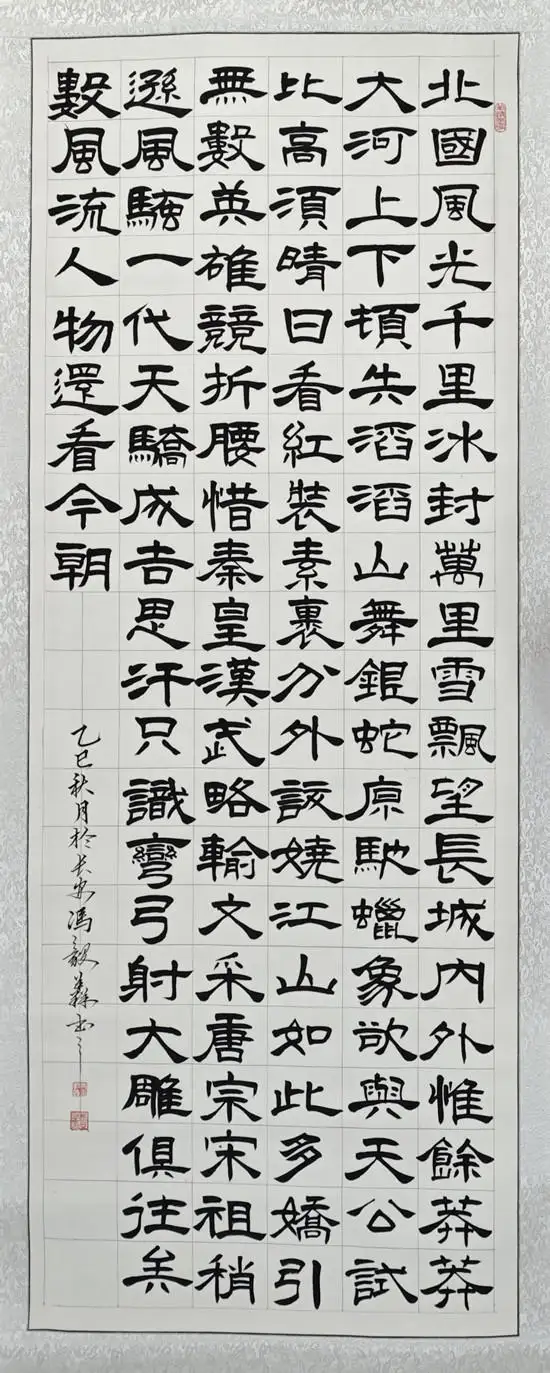 北國風光千里冰封萬里雪飄望長城內外惟餘莽莽
大河上下頓失滔滔山舞銀蛇原馳蠟象欲與天公試
比高須晴日看紅裝素裹分外該嬈江山如此多嬌引
無數英雄競折腰惜秦皇漢武略輸文采唐宗宋祖稍
遜風騷一代天驕成吉思汗只識彎弓射大雕俱往矣
數風流人物還看今朝
乙巳秋月於长安冯毅书之